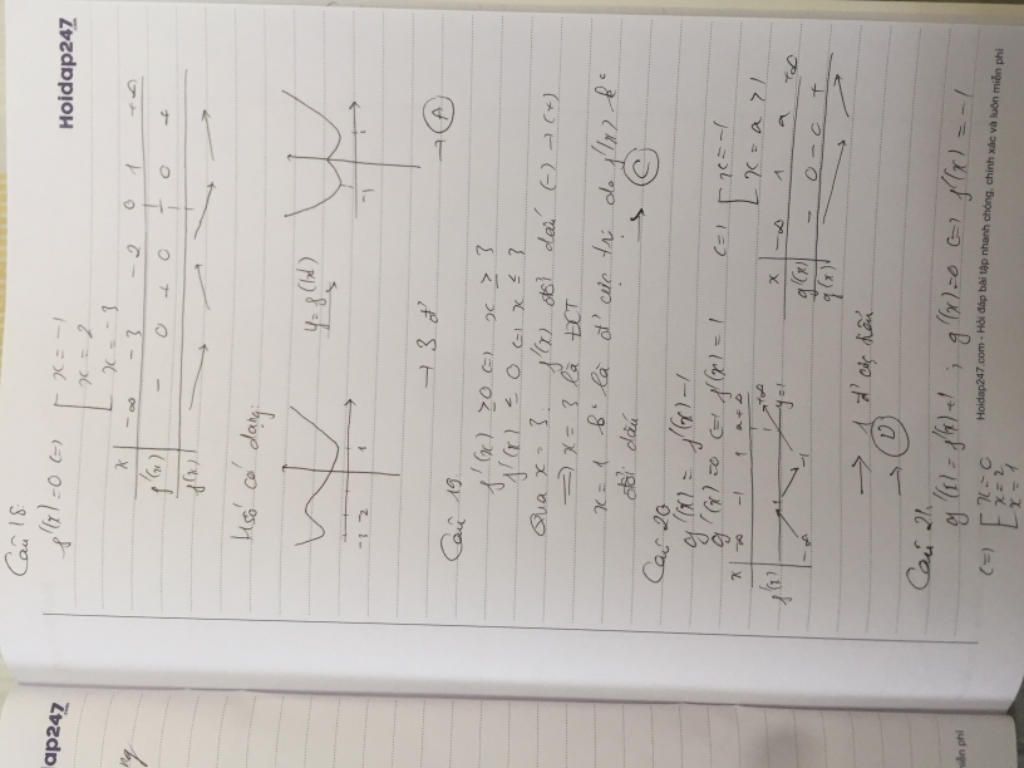 Hoidap247
Câu 18
f'(x) = 0 (=) [ x = -1
x = 2
x = -3
x | -∞ -3 -2 0 1 +∞
f'(x) | - 0 + 0 - 0 +
f(x) |
H.số có dạng:
y = f(|x|)
-3 -2 1
-1 1
→ 3 đ' → (A)
Câu 19.
f'(x) ≥ 0 (=) x ≥ 3
f'(x) ≤ 0 (=) x ≤ 3
Qua x = 3. f'(x) đổi dấu (-) → (+)
=) x = 3 là ĐCT
x = 1 k° là đ' cực trị do f'(x) k°
đổi dấu → (C)
Câu 20
g'(x) = f'(x) - 1
g'(x) = 0 (=) f'(x) = 1 (=) [ x = -1
x = a > 1
x | -∞ -1 1 a +∞
f'(x) | -∞ -1 +∞ y=1
x | -∞ 1 a +∞
g'(x) | - 0 - 0 +
g(x) |
→ 1 đ'
→ (D)
Câu 21.
g'(x) = f'(x) + 1 ; g'(x) = 0 (=) f'(x) = -1
(=) [ x = 0
x = 2
x = 1
Hoidap247.com - Hỏi đáp bài tập nhanh chóng, chính xác và luôn miễn phí
ap247
miễn phí